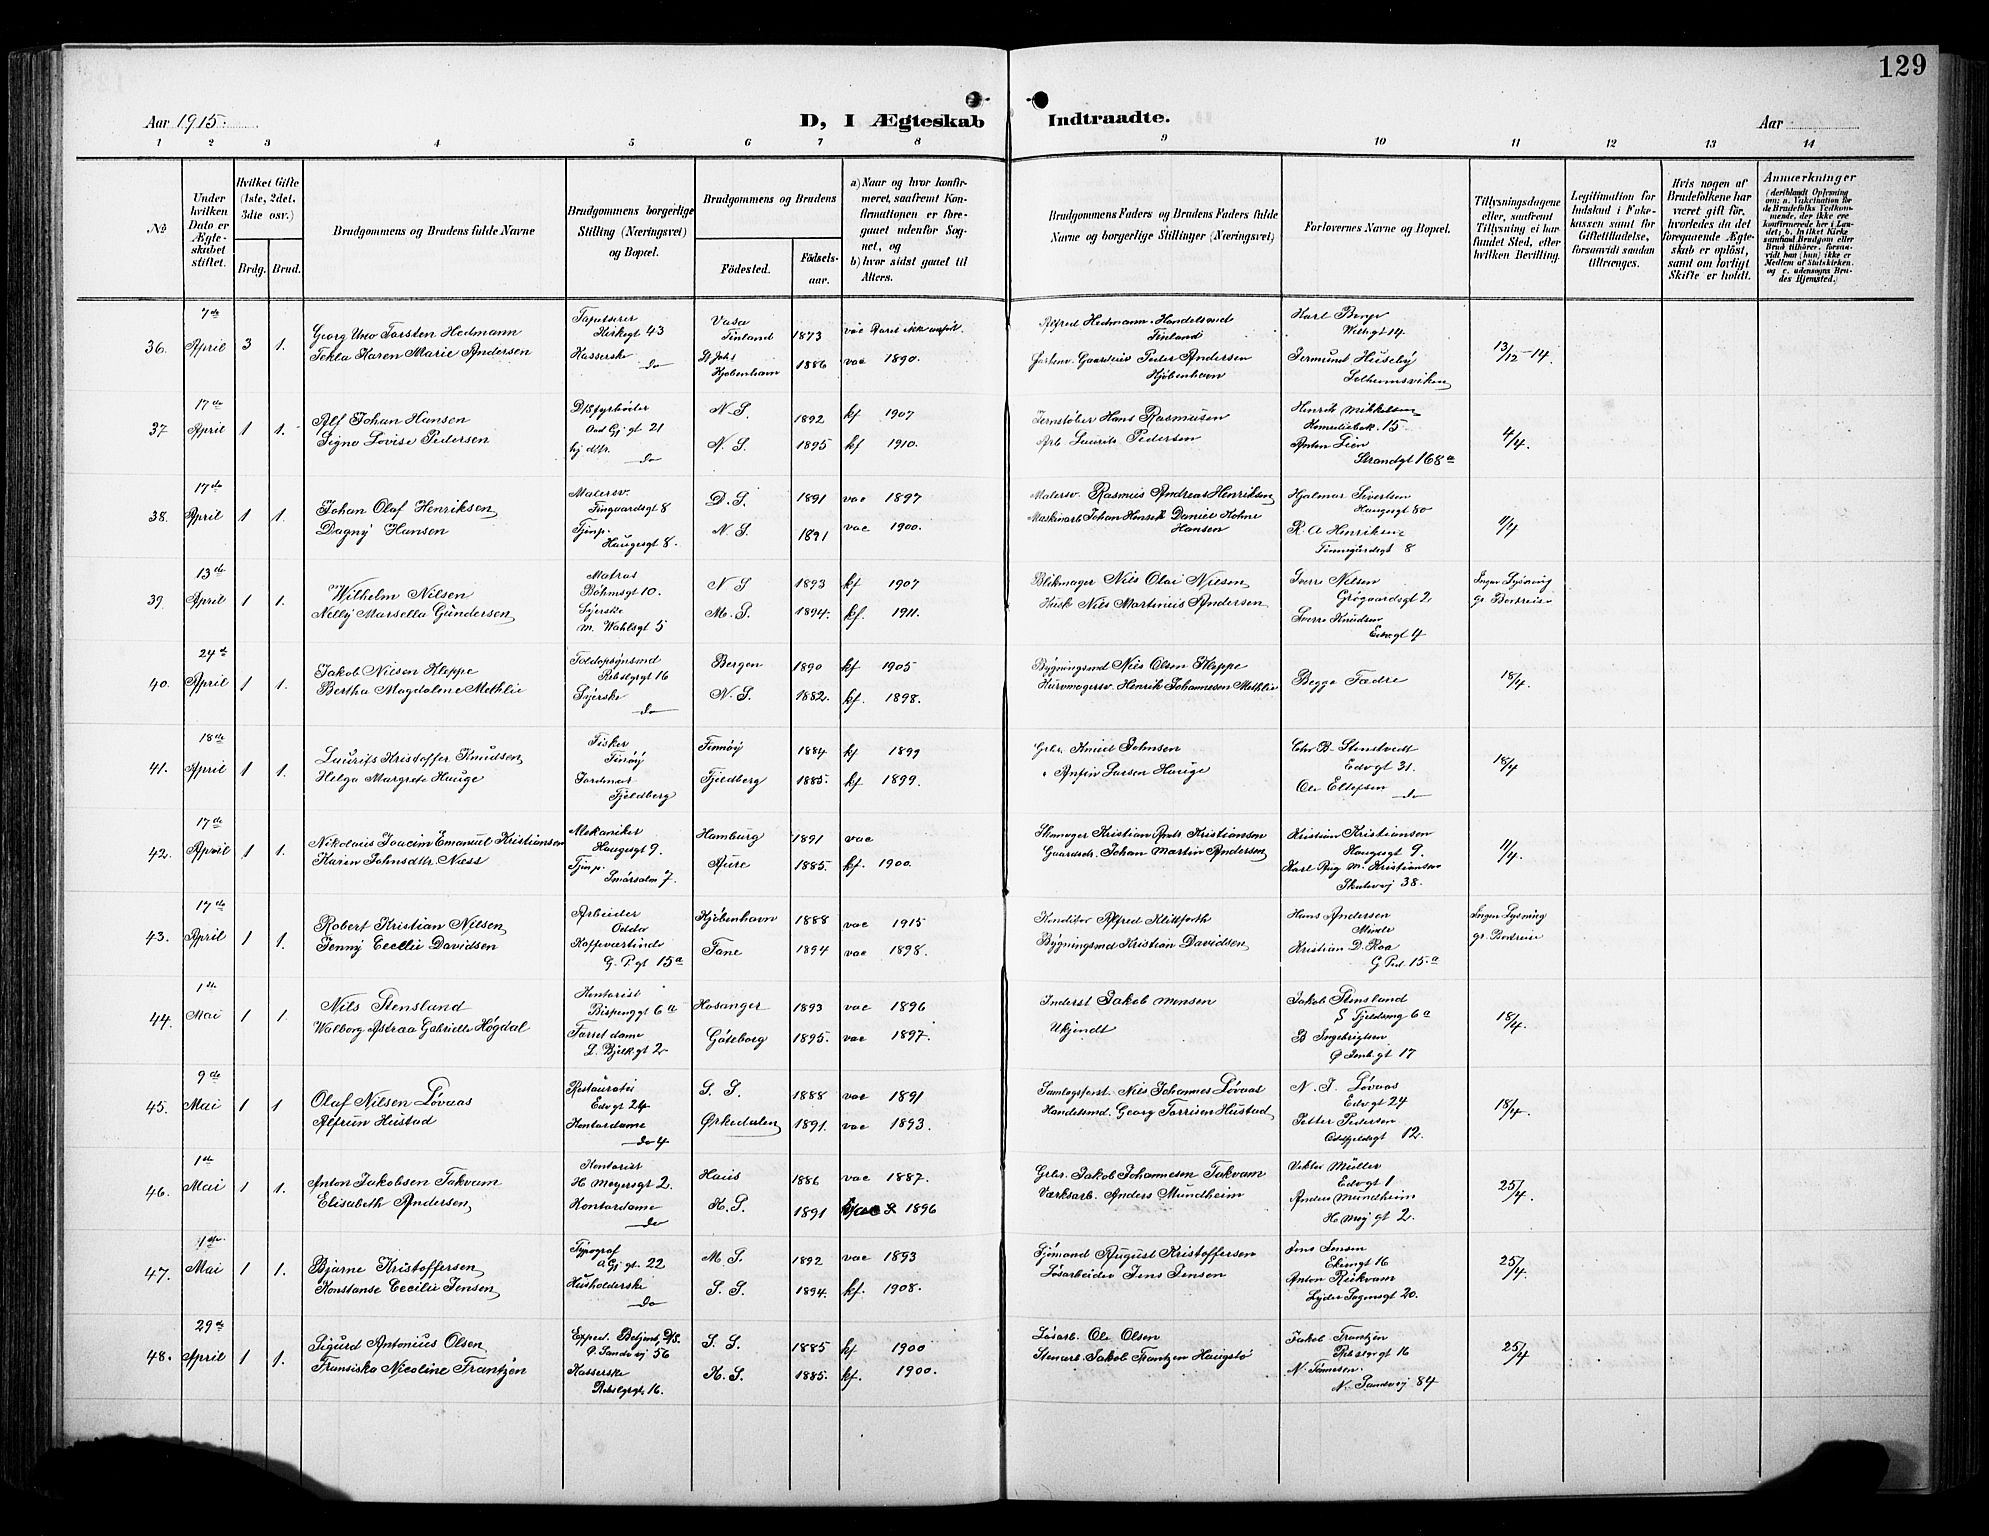 129
Aar 1915.
D, I Ægteskab Indtraadte.
Aar
1 2 3 4 5 6 7 8 9 10 11 12 13 14
No
Under hvilken Dato er Ægteskabet stiftet.
Hvilket Gifte (1ste, 2det, 3dte osv.)
Brdg. Brud.
Brudgommens og Brudens fulde Navne
Brudgommens borgerlige Stilling (Næringsvei) og Bopæl.
Brudgommens og Brudens
Födested. Födselsaar.
a) Naar og hvor konfirmeret, saafremt Konfirmationen er foregaaet udenfor Sognet, og
b) hvor sidst gaaet til Alters.
Brudgommens Faders og Brudens Faders fulde Navne og borgerlige Stillinger (Næringsvei)
Forlovernes Navne og Bopæl.
Tillysningsdagene eller, saafremt Tillysning ei har fundet Sted, efter hvilken Bevilling.
Legitimation for Indskud i Enkekassen samt for Giftetilladelse, forsaavidt saadan tiltrænges.
Hvis nogen af Brudefolkene har været gift før, hvorledes da det foregaaende Ægteskab er oplöst, samt om lovligt Skifte er holdt.
Anmærkninger
(deriblandt Oplysning om: a. Vakcination for de Brudefolks Vedkommende, der ikke ere konfirmerede her i Landet; b. hvilket Kirkesamfund Brudgom eller Brud tilhörer, forsaavidt han (hun) ikke er Medlem af Statskirken og c. udensogns Brudes Hjemsted.)
7de
36. April 3 1.
Georg Uno Torsten Hedmann
Tekla Karen Marie Andersen
Tapetserer
Kirkegt 43
Kasserske
do
Vasa
Finland 1873
St Johs
Kjøbenhavn 1886
vac
vac 1890.
Alfred Hedmann Handelsmd
Finland
Gaardeier Peder Andersen
Kjøbenhavn
Karl Berge
Welhgt 14
Jermund Huseby
Solheimsviken
13/12-14.
17de
37 April 1 1.
Alf Johan Hansen
Signe Lovise Pedersen
21
hj dtr.
do
N. S. 1892 kf 1907
N. S. 1895 kf 1910.
Jernstøber Hans Rasmusen
Arb Laurits Pedersen
Henrik Mikkelsen
15
Anton Lien
Strandgt 168a
4/4
17de
38. April 1 1.
Johan Olaf Henriksen
Dagny Hansen
Malersv.
Finnegaardsgt 8
Tjenp.
Haugesgt 8.
D. S. 1891 vac 1897
N. S. 1891 vac 1900.
Malersv. Rasmus Andreas Henriksen
Maskinarb Johan Henrik Daniel Holme
Hansen
Hjalmar Sivertsen
Haugesgt 80
R. A Henriksen
Finnegårdsgt 8
11/4
13de
39. April 1 1.
Wilhelm Nilsen
Nelly Marsella Gundersen
Matros
Böhmsgt 10.
Syerske
M. Wahlsgt 5
N S 1893 kf 1907
M. S. 1894 kf. 1911.
Blikmager Nils Olai Nilsen
Husk Nils Martinius Andersen
Sverre Nilsen
Grögaardsgt 2
Sverre Knudsen
Edvgt 4
Ingen Lysning
gr. Bortreise
24d
40. April 1 1.
Jakob Nilsen Kleppe
Bertha Magdalene Methlie
Toldopsynsmd
Rebslgrgt 16
Syerske
do
Bergen 1890 kf 1905
N. S. 1882. kf. 1898.
Bygningsmd Nils Olsen Kleppe
Kurvmagersv. Henrik Johannesen Methlie
Begge Fadre
18/4.
18de
41. April 1 1.
Laurits Kristoffer Knudsen
Helga Margrete Hauge
Fisker
Finöy
Jordemor
Fjeldberg
Finnöy 1884 kf 1899
Fjeldberg 1885. kf 1899.
Grbr. Knud Johnsen
" Anfin Larsen Hauge
Chr B. Stenstvedt
Edvgt 31.
Ole Ellefsen
do
18/4
17de
42. April 1 1.
Nikolaus Joacim Emanuel Kristiansen
Karen Johnsdtr. Næss
Mekaniker
Haugesgt 9.
Tjenp.
Smörsalm 7.
Hamburg 1891 vac
Aure 1885. kf. 1900.
Skomager Kristian Kristiansen
Gaardsb. Johan Martin Andersen
Kristian Kristiansen
Haugesgt 9
Karl M. Kristiansen
Skutevig 38.
11/4
17de
43. April 1 1.
Robert Kristian Nilsen
Jenny Cecilie Davidsen
Arbeider
Odda
Kaffevertinde
G. P. gt 15a
Kjøbenhavn 1888 vac 1915
Fane 1894 vac 1898.
Konditor Alfred Klittforth
Bygningsmd Kristian Davidsen
Hans Andersen
Minde
Kristian D. Roa
G Ped. 15.a
Ingen Lysning
gr. Bortreise
1de
44. Mai 1 1.
Nils Stensland
Walborg Astraa Gabrielle Høgdal
Kontorist
Bispenggt 6a
2.
Hosanger 1893 vac 1896
Göteborg 1895. vac 1897.
Inderst Jakob Monsen
Ukjendt
Jakob Stensland
6a
B Ingebrigtsen
17
18/4.
9de
45. Mai 1 1
Olaf Nilsen Løvaas
Alfrun Hustad
Edvgt 24
Kontordame
do 4
S. S. 1888 vac 1891
Orkedalen 1891. vac 1893.
Samlagsforst. Nils Johannes Løvaas
Handelsmd. Georg Torrisen Hustad
N. J. Løvaas
Edvgt 24
Petter Pedersen
Oddfjeldsgt 12.
18/4.
1de
46. Mai 1 1.
Anton Jakobsen Takvam
Elisabeth Andersen
Kontorist
H Meyersgt 2.
Kontordame
do
Haus 1886 vac 1887.
K. S. 1891 vac 1896
Grbr. Jakob Johannesen Takvam
Værksarb. Anders Mundheim
Viktor Müller
Edvgt 1
Anders Mundheim
H. Mey gt 2.
25/4.
1de
47. Mai 1 1.
Bjarne Kristoffersen
Konstanse Cecilie Jensen
Typograf
A. Gj gt. 22
Husholderske
do
M. S. 1892 vac 1893
S. S. 1894. kf. 1908.
Sjømand August Kristoffersen
Løsarbeider Jens Jensen
Jens Jensen
Ekrengt 16
Anton Reikvam
Lyder Sagensgt 20.
25/4.
29de
48. April 1 1.
Sigurd Antonius Olsen
Fransiska Nicoline Frantzen
Exped. Betjent
Ø. Sandvig 56
Kasserske
Rebslgrgt. 16.
S. S. 1885 kf 1900
K. S. 1885. kf. 1900.
Løsarb. Ole Olsen
Stenarb. Jakob Frantzen Haugstö
Jakob Frantzen
Rebslgrgt 16
N. Tönnesen
N. Sandvig 84
25/4